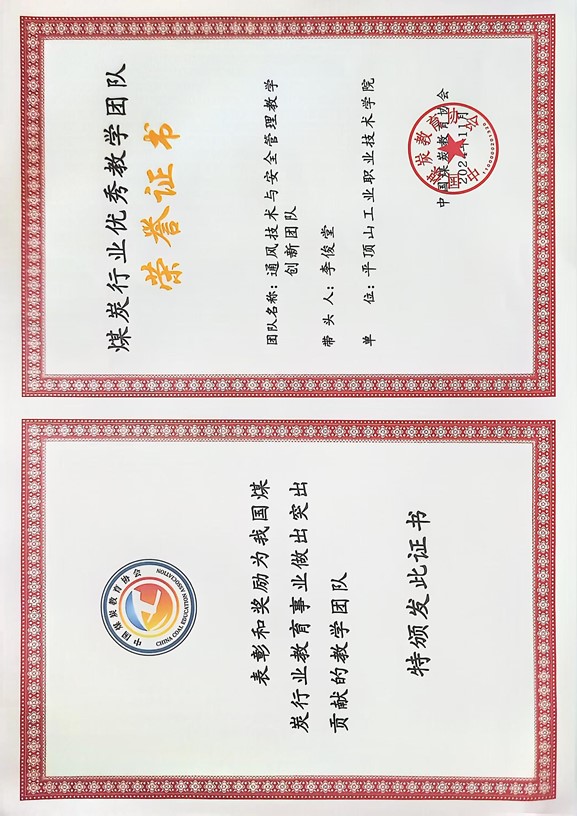 中国煤炭教育协会
CHINA COAL EDUCATION ASSOCIATION
表彰和奖励为我国煤
炭行业教育事业做出突出
贡献的教学团队
特颁发此证书
煤炭行业优秀教学团队
荣誉证书
团队名称：通风技术与安全管理教学
创新团队
带头人：李俊堂
单位：平顶山工业职业技术学院
中国煤炭教育协会